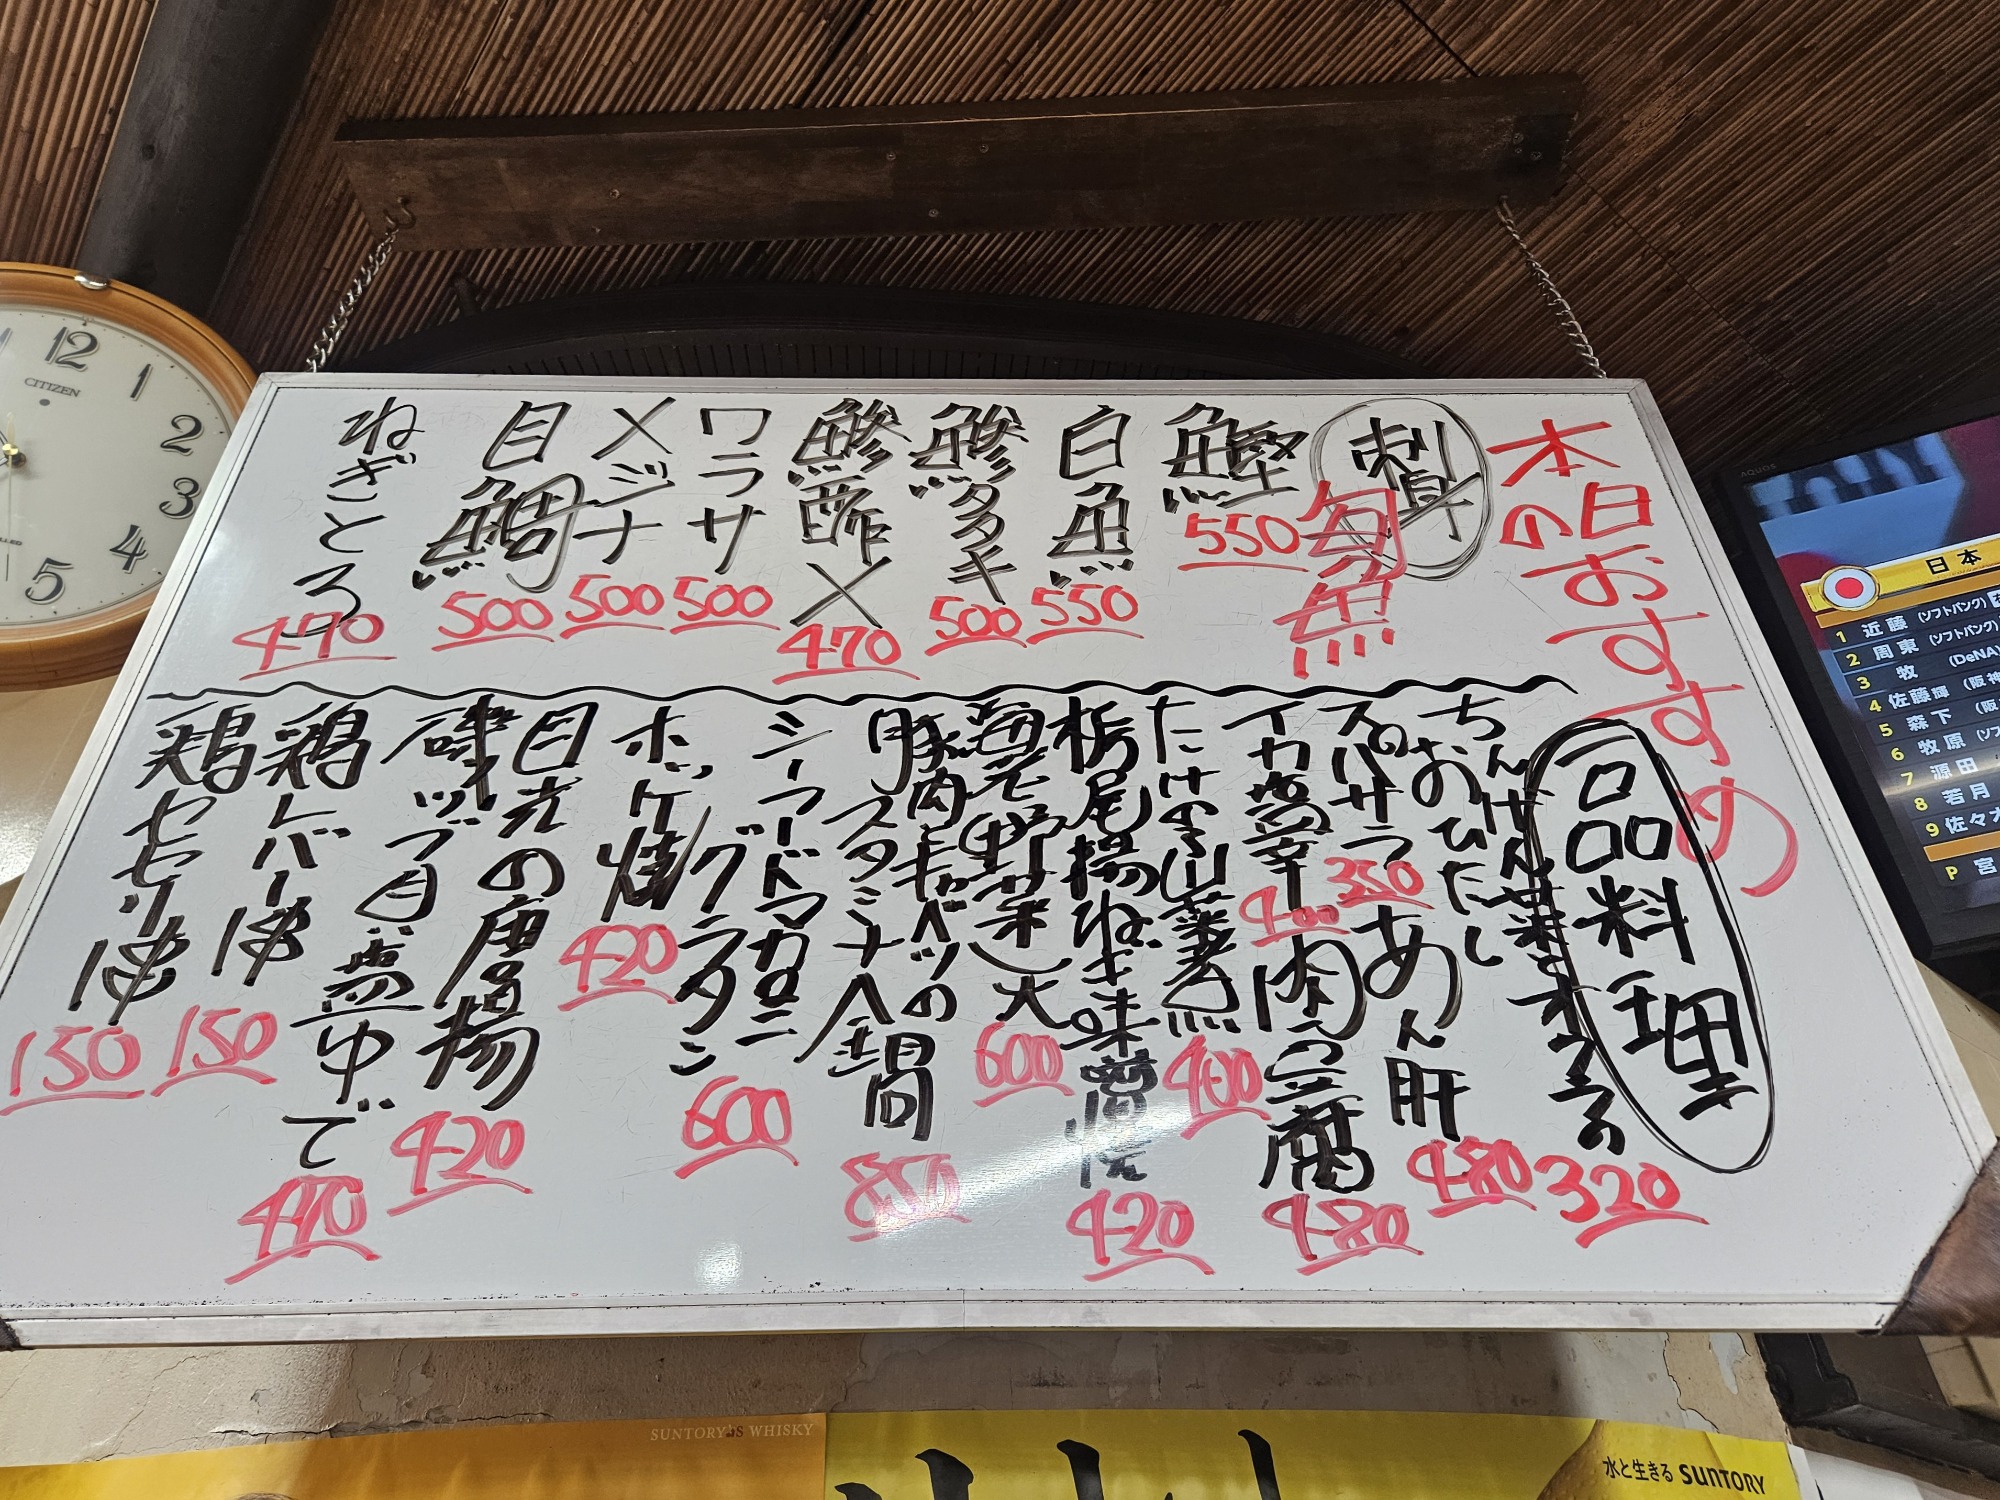 本日の
おすすめ
刺身
旬魚
鰹
550
白魚
550
鯵タタキ
500
鯵酢〆
470
ワラサ
500
メジナ
500
目鯛
500
ねぎとろ
470
一品料理
ちんげん菜とオクラの
おひたし
320
スパサラ
350
あん肝
480
イカ塩辛
400
肉豆腐
480
たけのこ山菜煮
400
栃尾揚ねぎ味噌焼
420
海老野菜天
600
豚肉とキャベツの
スタミナ鍋
850
シーフードマカロニ
グラタン
600
ホッケ焼
420
目光の唐揚
420
磯ツブ貝塩ゆで
470
鶏レバー串
150
鶏セセリ串
150
12
1
2
3
4
5
CITIZEN
AQUOS
日本
1 近藤 (ソフトバンク)
2 周東 (ソフトバンク)
3 牧 (DeNA)
4 佐藤輝 (阪神
5 森下 (阪
6 牧原 (ソフ
7 源田
8 若月
9 佐々木
P 宮
SUNTORY'S WHISKY
水と生きる SUNTORY